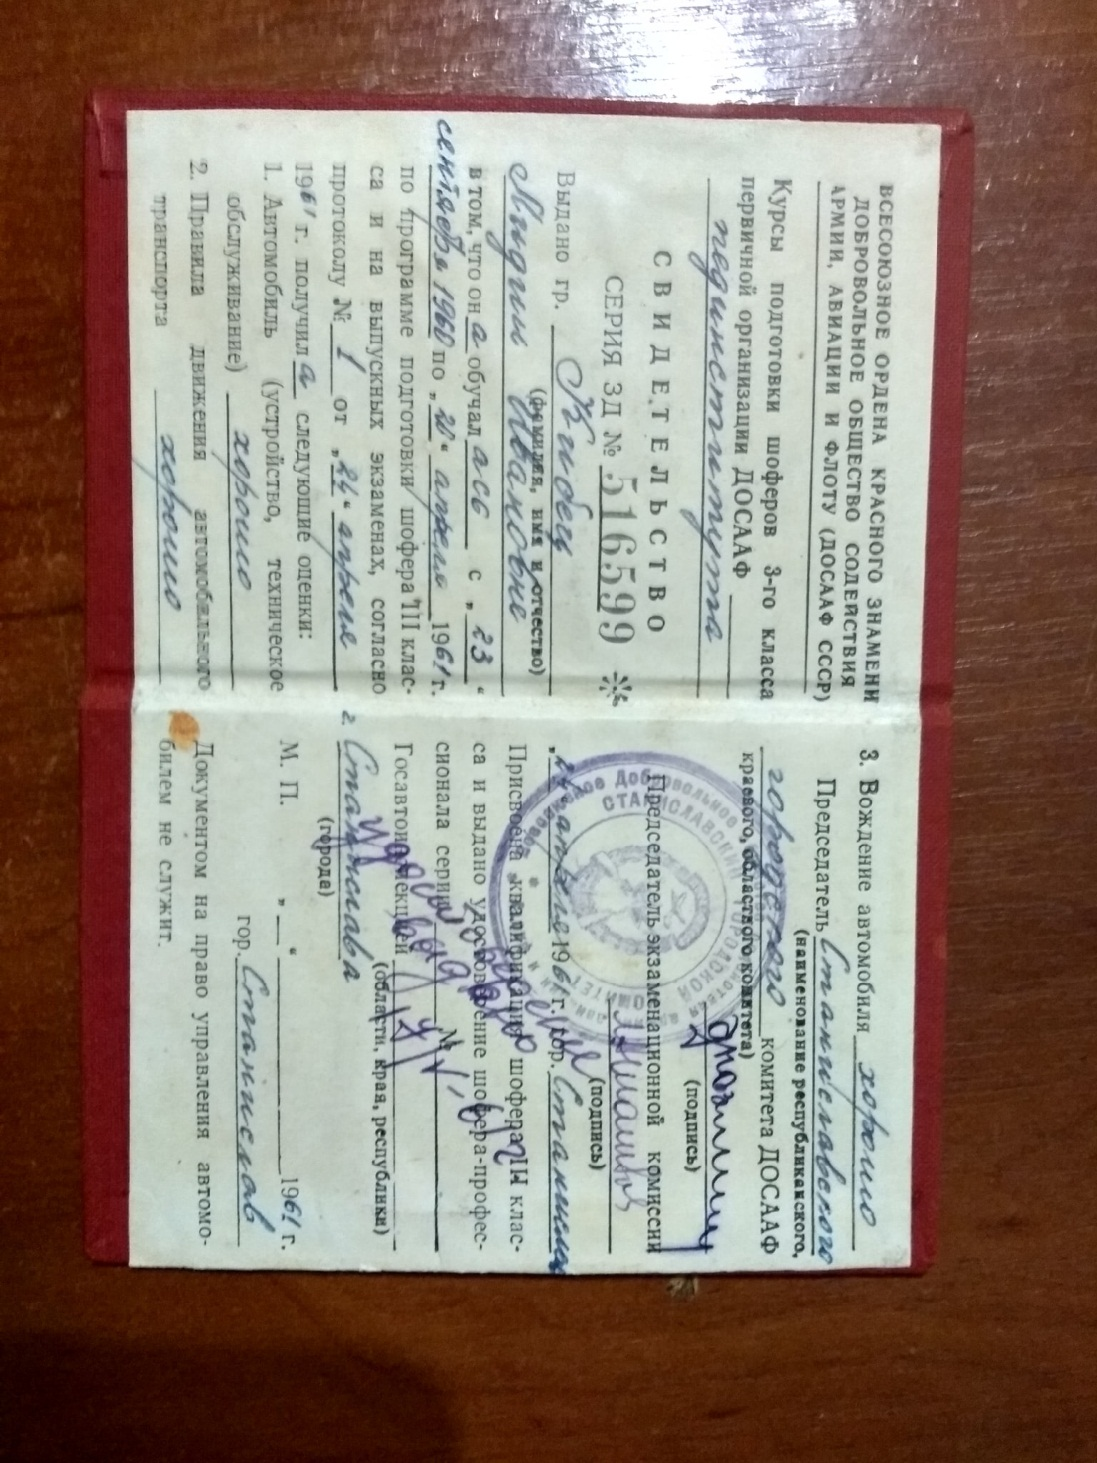 ВСЕСОЮЗНОЕ ОРДЕНА КРАСНОГО ЗНАМЕНИ
ДОБРОВОЛЬНОЕ ОБЩЕСТВО СОДЕЙСТВИЯ
АРМИИ, АВИАЦИИ И ФЛОТУ (ДОСААФ СССР)
Курсы подготовки шоферов 3-го класса
первичной организации ДОСААФ
пединститута
СВИДЕТЕЛЬСТВО
СЕРИЯ ЗД № 516599
Выдано гр. Кибец
(фамилия, имя и отчество)
Лидии Ивановне
в том, что он а обучал ась с „23“
сентября 1960 по „20“ апреля 1961 г.
по программе подготовки шофера III клас-
са и на выпускных экзаменах, согласно
протоколу № 1 от „24“ апреля
1961 г. получил а следующие оценки:
1. Автомобиль (устройство, техническое
обслуживание) хорошо
2. Правила движения автомобильного
транспорта хорошо
3. Вождение автомобиля хорошо
Председатель Станиславского
(наименование республиканского,
городского комитета ДОСААФ
краевого, областного комитета)
(подпись)
Председатель экзаменационной комиссии
(подпись)
„24“ апреля 1961 г. гор. Станислав
Присвоена квалификация шофера III клас-
са и выдано удостоверение шофера-профес-
сионала серии №
Госавтоинспекцией
(области, края, республики)
г. Станислава
(города)
М. П. „ “ 1961 г.
гор. Станислав
Документом на право управления автомо-
билем не служит.